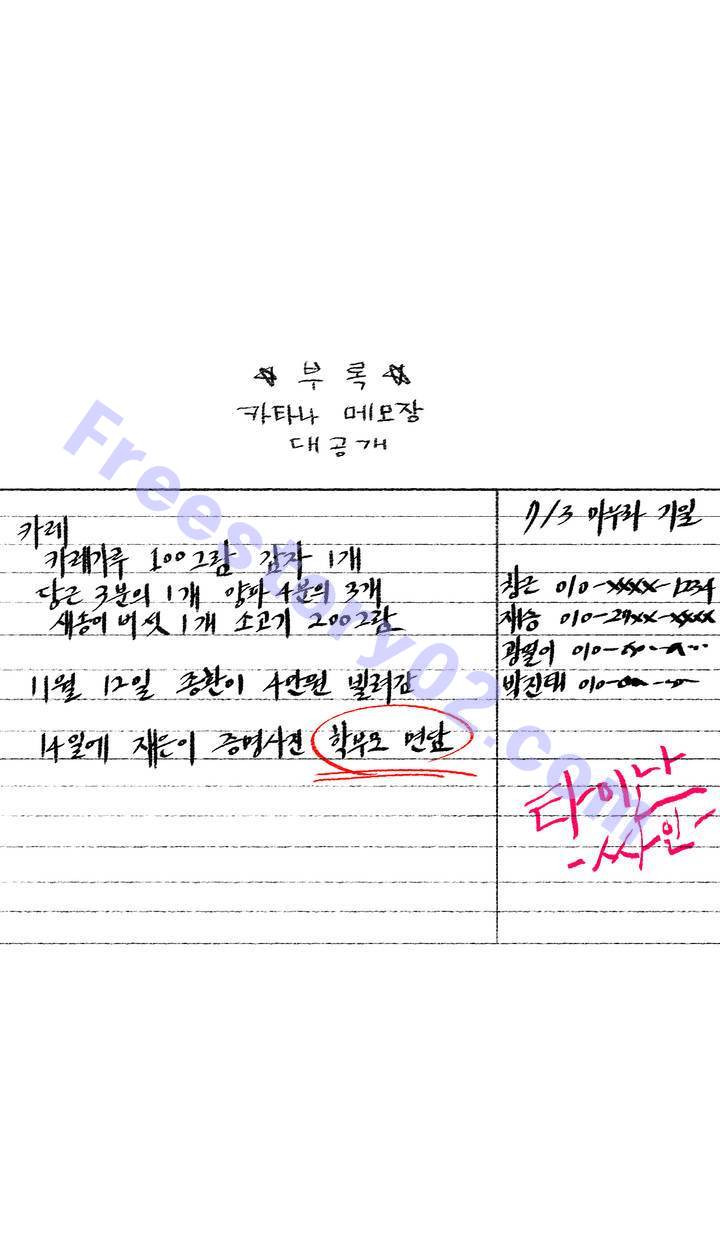 ☆ 부록 ☆
카타나 메모장
대공개
카레
카레가루 100그람 감자 1개
당근 3분의 1개 양파 4분의 3개
새송이 버섯 1개 소고기 200그람
11월 12일 종환이 4만원 빌려감
14일에 재은이 증명사진 학부모 면담
7/3 마누라 기일
창근 010-xxxx-1234
재승 010-29xx-xxxx
광열이 010-
박진태 010-
타이나
-싸인-
Freestory02.com